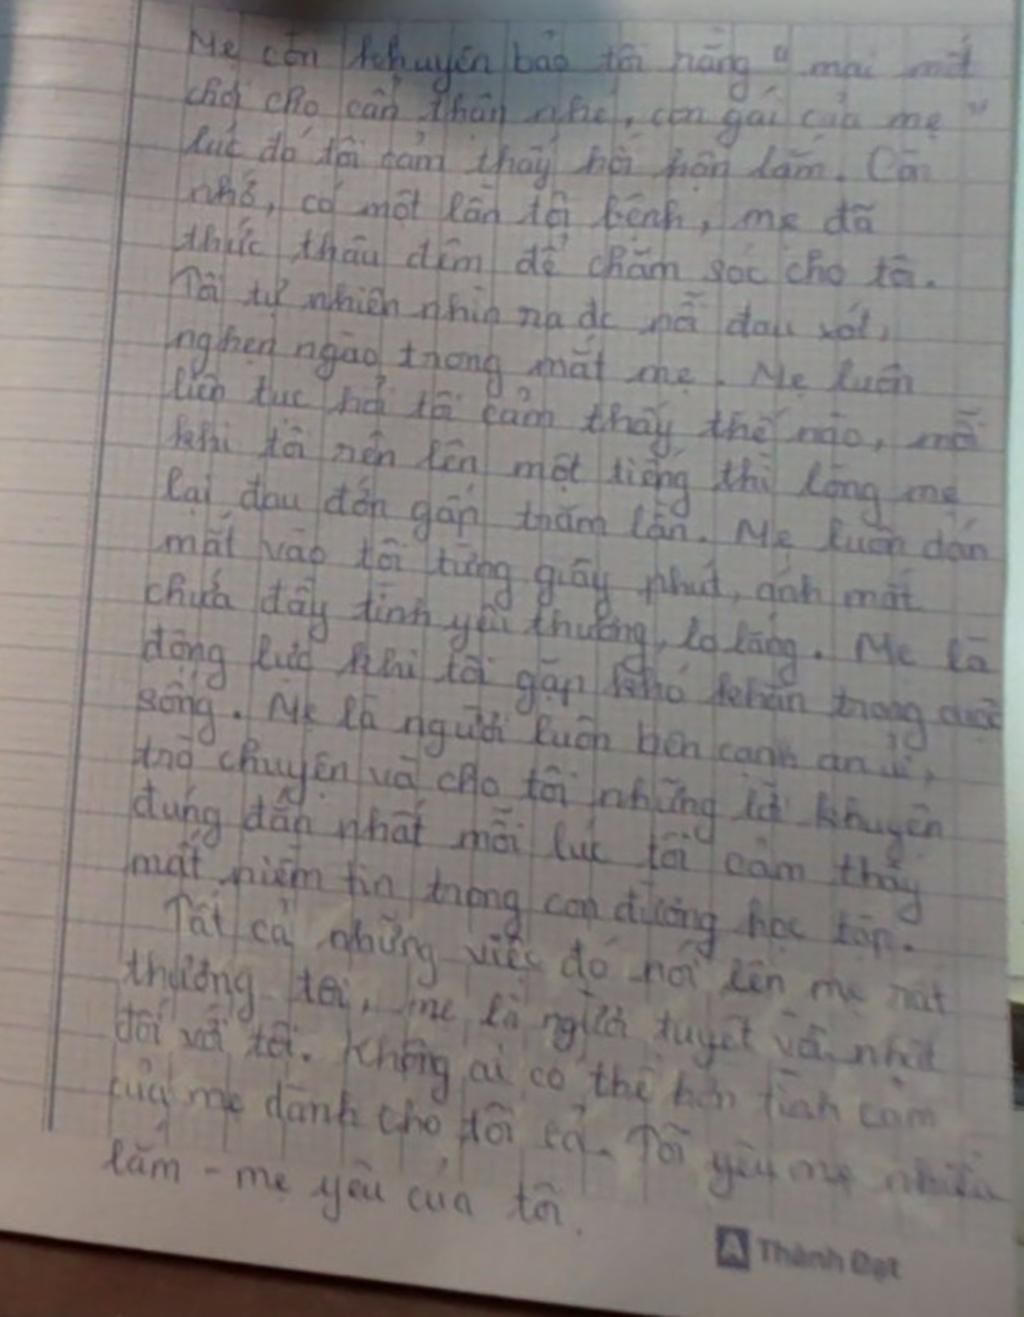 Mẹ còn khuyên bảo tôi rằng "mai mốt
chơi cho cẩn thận nhé, con gái của mẹ"
lúc đó tôi cảm thấy hối hận lắm. Còn
nhớ, có một lần tôi bệnh, mẹ đã
thức thâu đêm để chăm sóc cho tôi.
Tôi tự nhiên nhìn ra đc nỗi đau xót,
nghẹn ngào trong mắt mẹ. Mẹ luôn
liên tục hỏi tôi cảm thấy thế nào, mỗi
khi tôi rên lên một tiếng thì lòng mẹ
lại đau đớn gấp trăm lần. Mẹ luôn dán
mắt vào tôi từng giây phút, ánh mắt
chứa đầy tình yêu thương, lo lắng. Mẹ là
động lực khi tôi gặp khó khăn trong cuộc
sống. Mẹ là người luôn bên cạnh an ủi,
trò chuyện và cho tôi những lời khuyên
đúng đắn nhất mỗi lúc tôi cảm thấy
mất niềm tin trong con đường học tập.
Tất cả những việc đó nói lên mẹ rất
thương tôi, mẹ là người tuyệt vời nhất
đối với tôi. Không ai có thể hơn tình cảm
của mẹ dành cho tôi cả. Tôi yêu mẹ nhiều
lắm - mẹ yêu của tôi.
A Thành Đạt